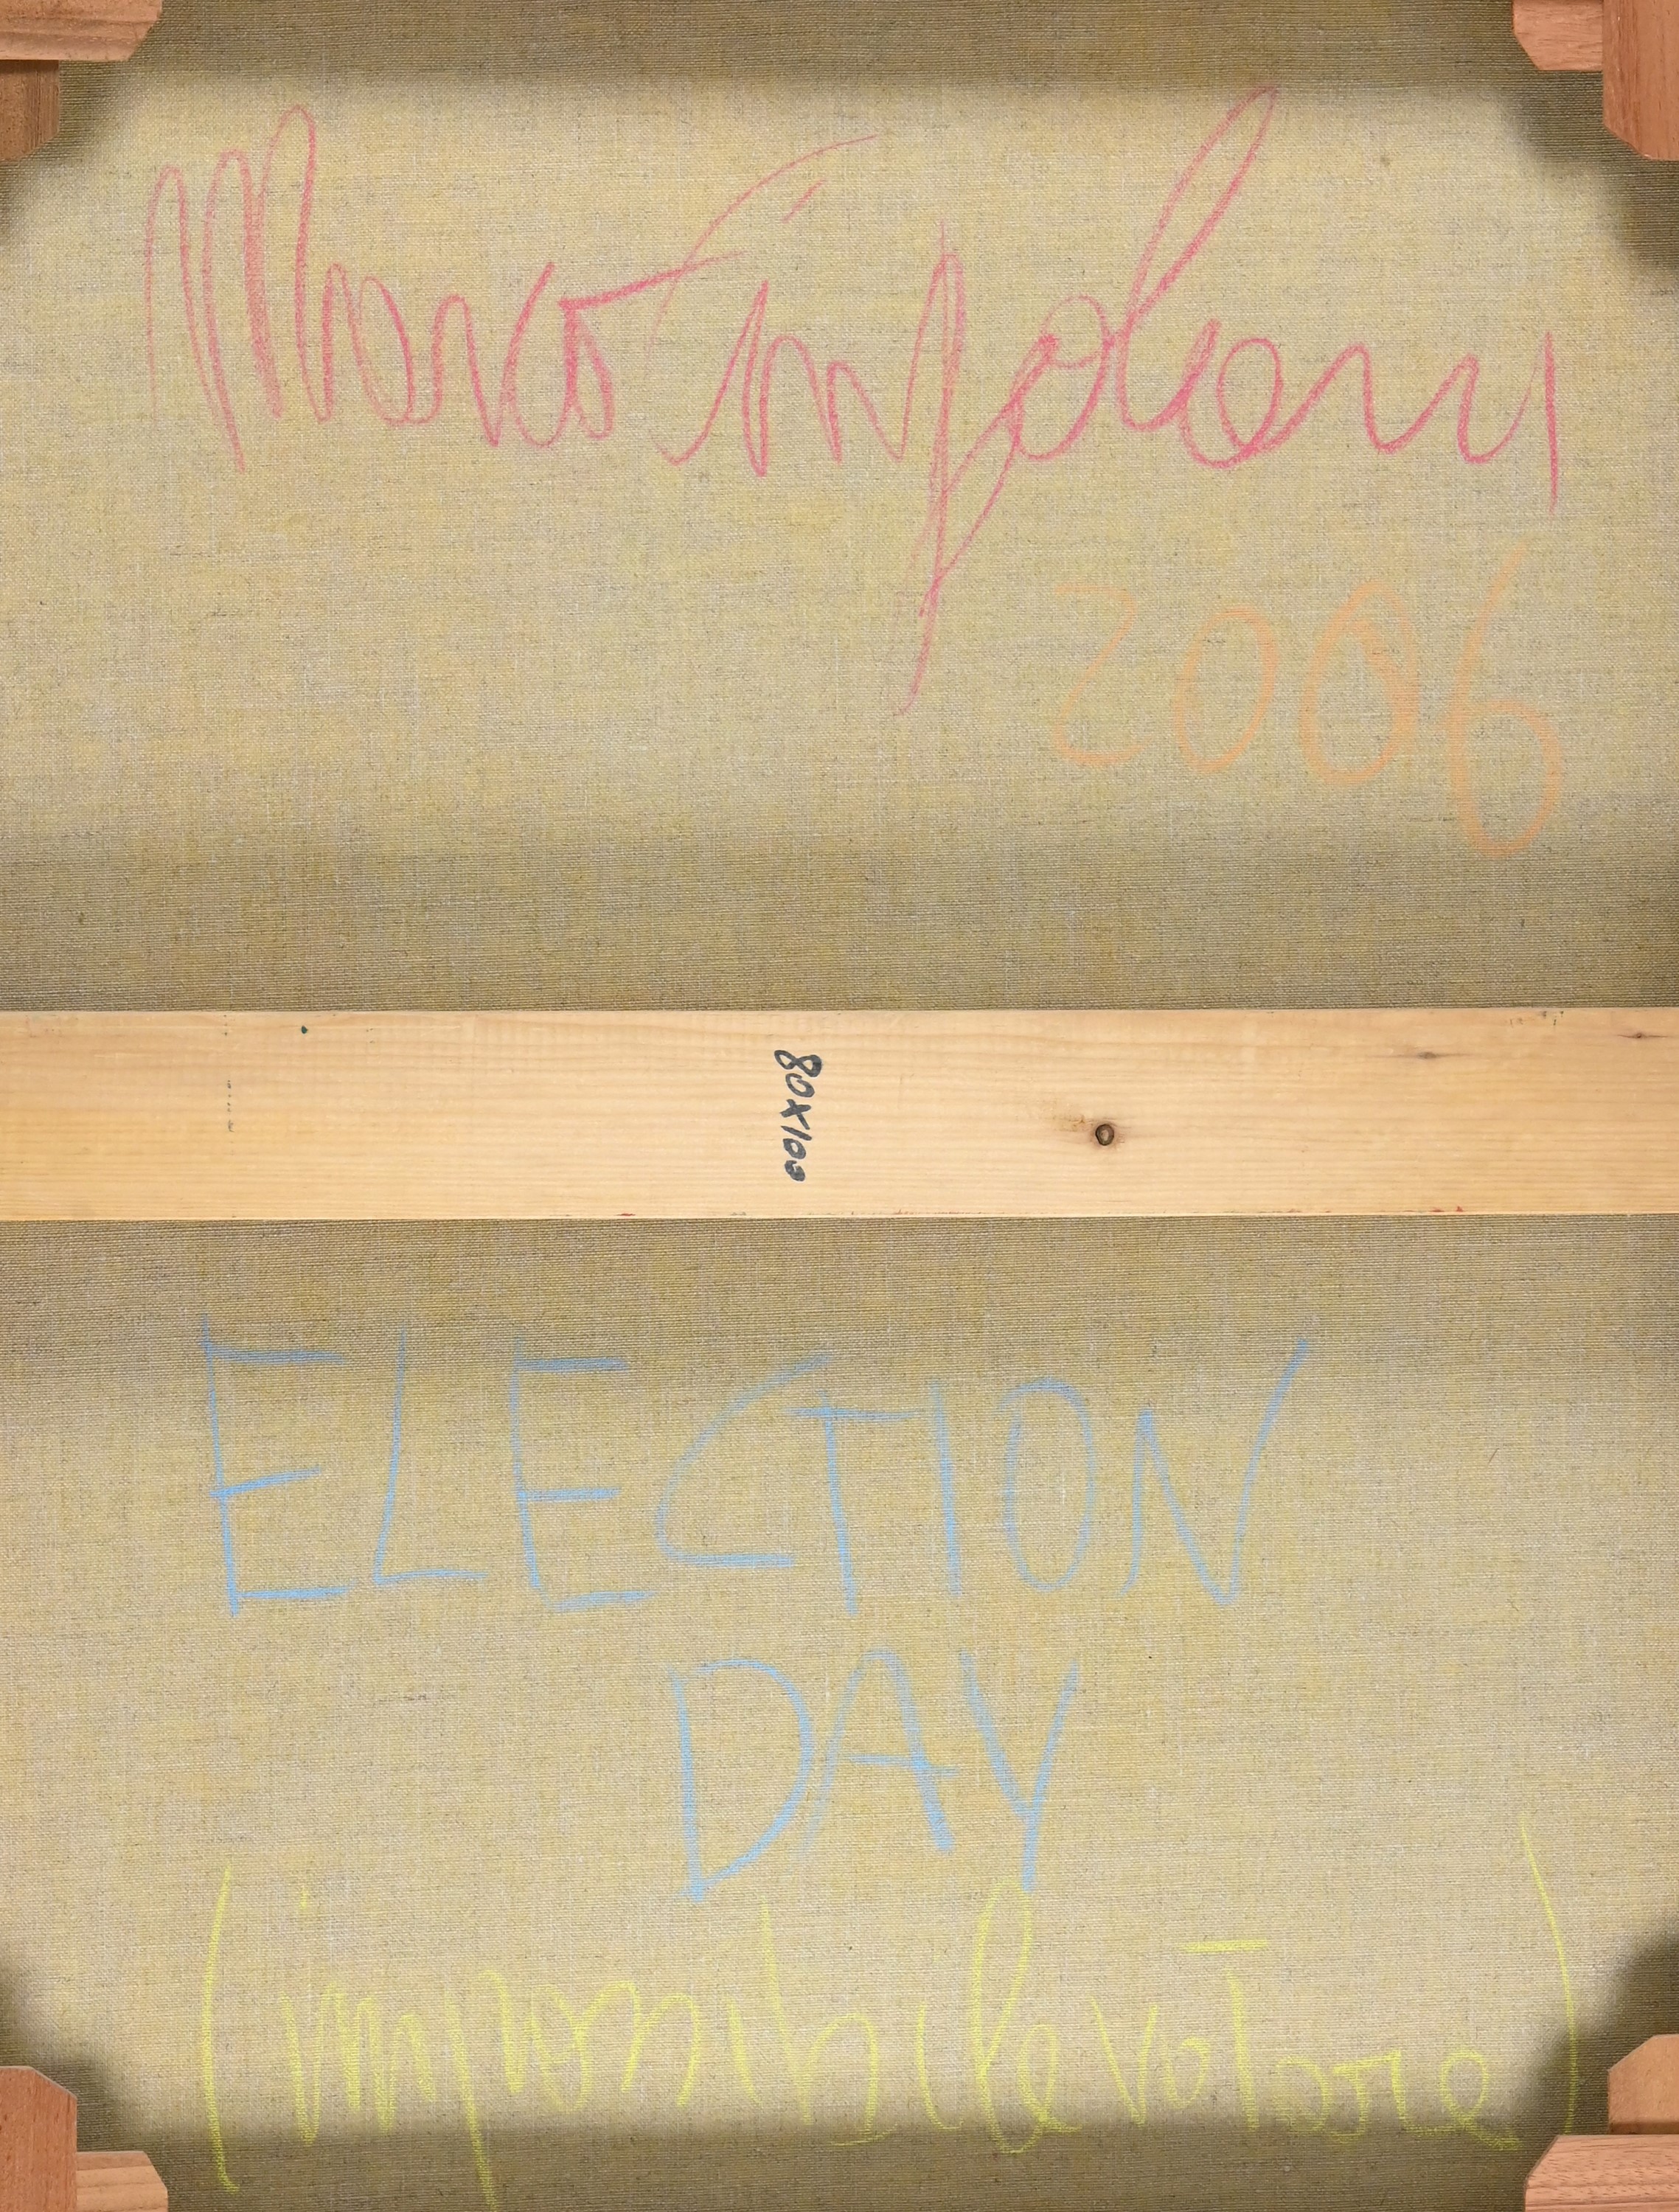 Marco
2006
80x100
ELECTION
DAY
(impossibile votare)